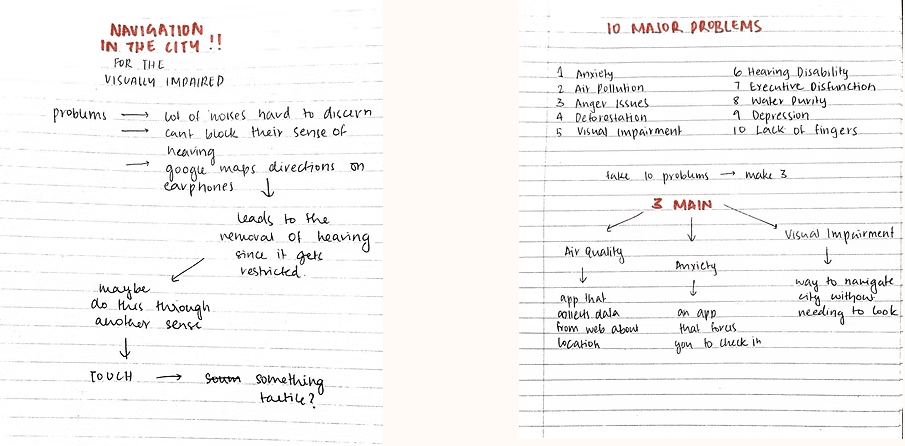 NAVIGATION
IN THE CITY !!
FOR THE
VISUALLY IMPAIRED
problems → lot of noises hard to discern
→ cant block their sense of
hearing
→ google maps directions on
earphones
leads to the
removal of hearing
since it gets
restricted.
maybe
do this through
another sense
TOUCH → something
tactile?
10 MAJOR PROBLEMS
1 Anxiety
2 Air Pollution
3 Anger Issues
4 Deforostation
5 Visual Impairment
6 Hearing Disability
7 Executive Disfunction
8 Water Purity
9 Depression
10 Lack of fingers
take 10 problems → make 3
3 MAIN
Air Quality
app that
collects data
from web about
location
Anxiety
an app
that forces
you to check in
Visual Impairment
way to navigate
city without
needing to look